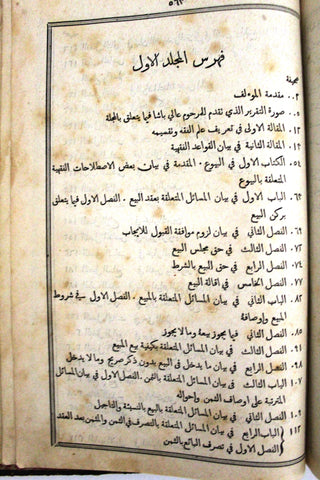 ٥٦٣
فهرس المجلد الاول
صحيفة
٠٠٢ مقدمة الموءلف
٠٠٥ صورة التقرير الذي تقدم للمرحوم عالي باشا فيما يتعلق بالمجلة
٠١٢ المقالة الاولى في تعريف علم الفقه وتقسيمه
٠١٣ المقالة الثانية في بيان القواعد الفقهية
٠٥٤ الكتاب الاول في البيوع . المقدمة في بيان بعض الاصطلاحات الفقهية
المتعلقة بالبيوع
٠٦٣ الباب الاول في بيان المسائل المتعلقة بعقد البيع . الفصل الاول فيما يتعلق
بركن البيع
٠٦٩ الفصل الثاني في بيان لزوم موافقة القبول للايجاب
٠٧١ الفصل الثالث في حق مجلس البيع
٠٧٤ الفصل الرابع في حق البيع بالشرط
٠٧٧ الفصل الخامس في اقالة البيع
٠٨٢ الباب الثاني في بيان المسائل المتعلقة بالمبيع . الفصل الاول في شروط
المبيع واوصافة
٠٨٥ الفصل الثاني فيما يجوز بيعه وما لا يجوز
٠٩١ الفصل الثالث في بيان المسائل المتعلقة بكيفية بيع المبيع
٠٩٨ الفصل الرابع في بيان ما يدخل في البيع بدون ذكر صريح وما لا يدخل
١٠٧ الباب الثالث في بيان المسائل المتعلقة بالثمن . الفصل الاول في بيان المسائل
المترتبة على اوصاف الثمن واحواله
١٠٩ الفصل الثاني في بيان المسائل المتعلقة بالبيع بالنسيئة والتاجيل
١١٢ الباب الرابع في بيان المسائل المتعلقة بالتصرف في الثمن والمثمن بعد العقد
الفصل الاول في تصرف البائع بالثمن